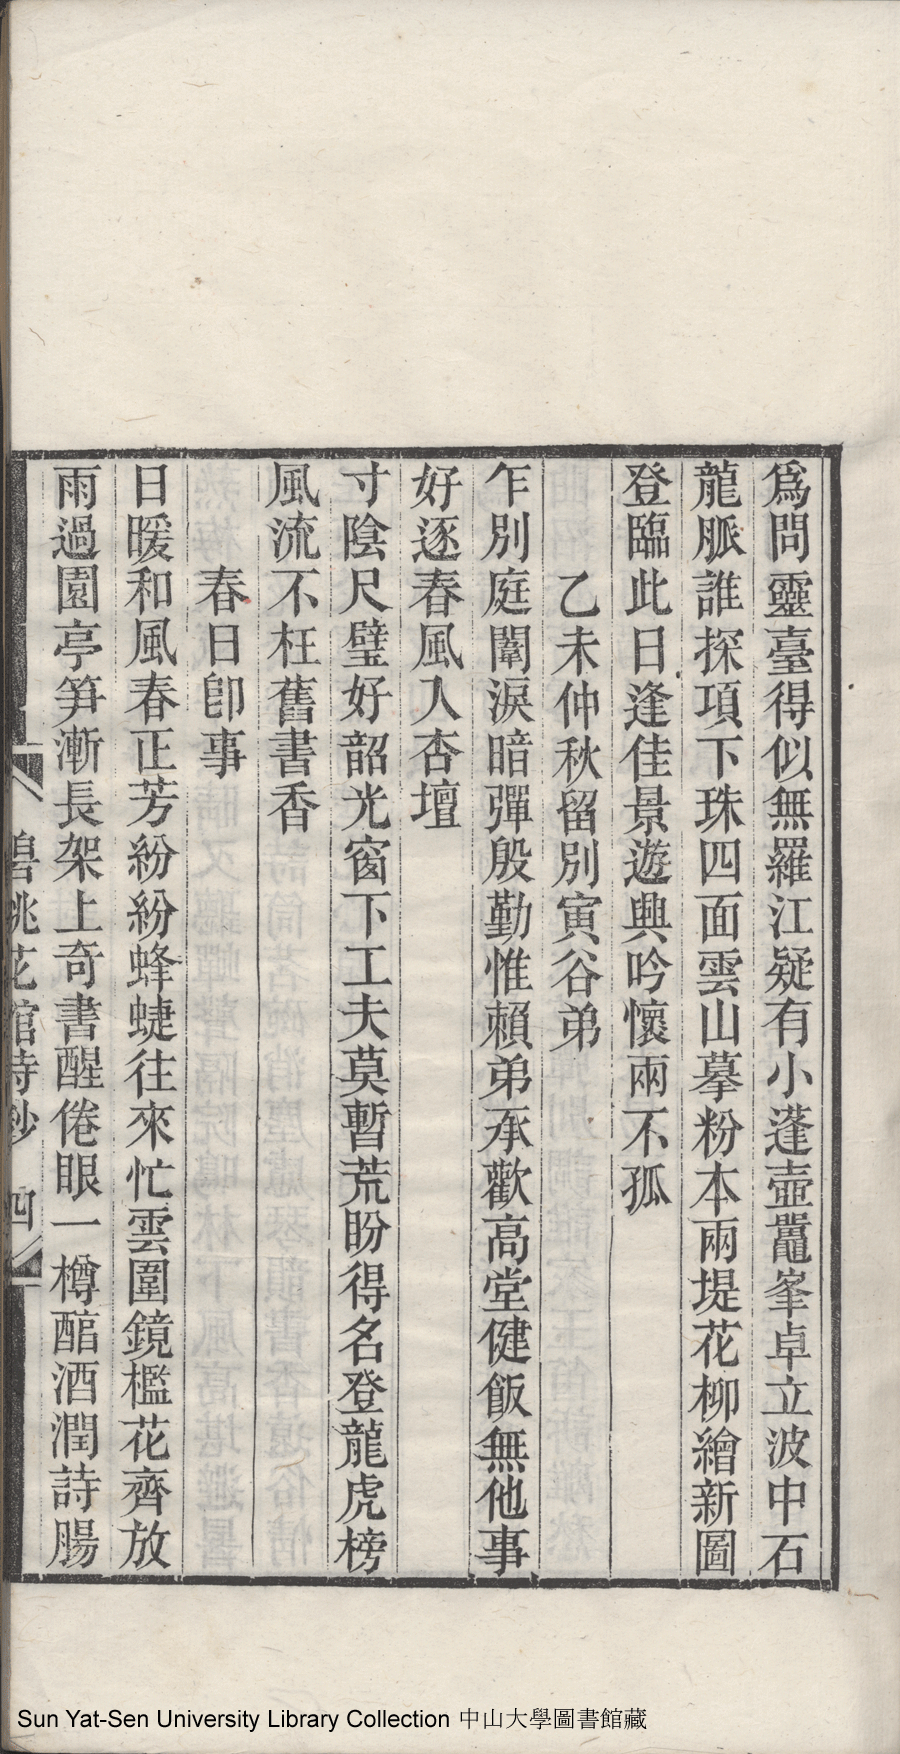 爲問靈臺得似無羅江疑有小蓬壺鼉峯卓立波中石
龍脈誰探項下珠四面雲山摹粉本兩堤花柳繪新圖
登臨此日逢佳景遊興吟懷兩不孤
乙未仲秋留別寅谷弟
乍別庭闈淚暗彈殷勤惟賴弟承歡高堂健飯無他事
好逐春風入杏壇
寸陰尺璧好韶光窗下工夫莫暫荒盼得名登龍虎榜
風流不枉舊書香
春日卽事
日暖和風春正芳紛紛蜂蜨往來忙雲圍鏡檻花齊放
雨過園亭笋漸長架上奇書醒倦眼一樽酣酒潤詩腸
碧桃花館詩鈔 四
Sun Yat-Sen University Library Collection 中山大學圖書館藏